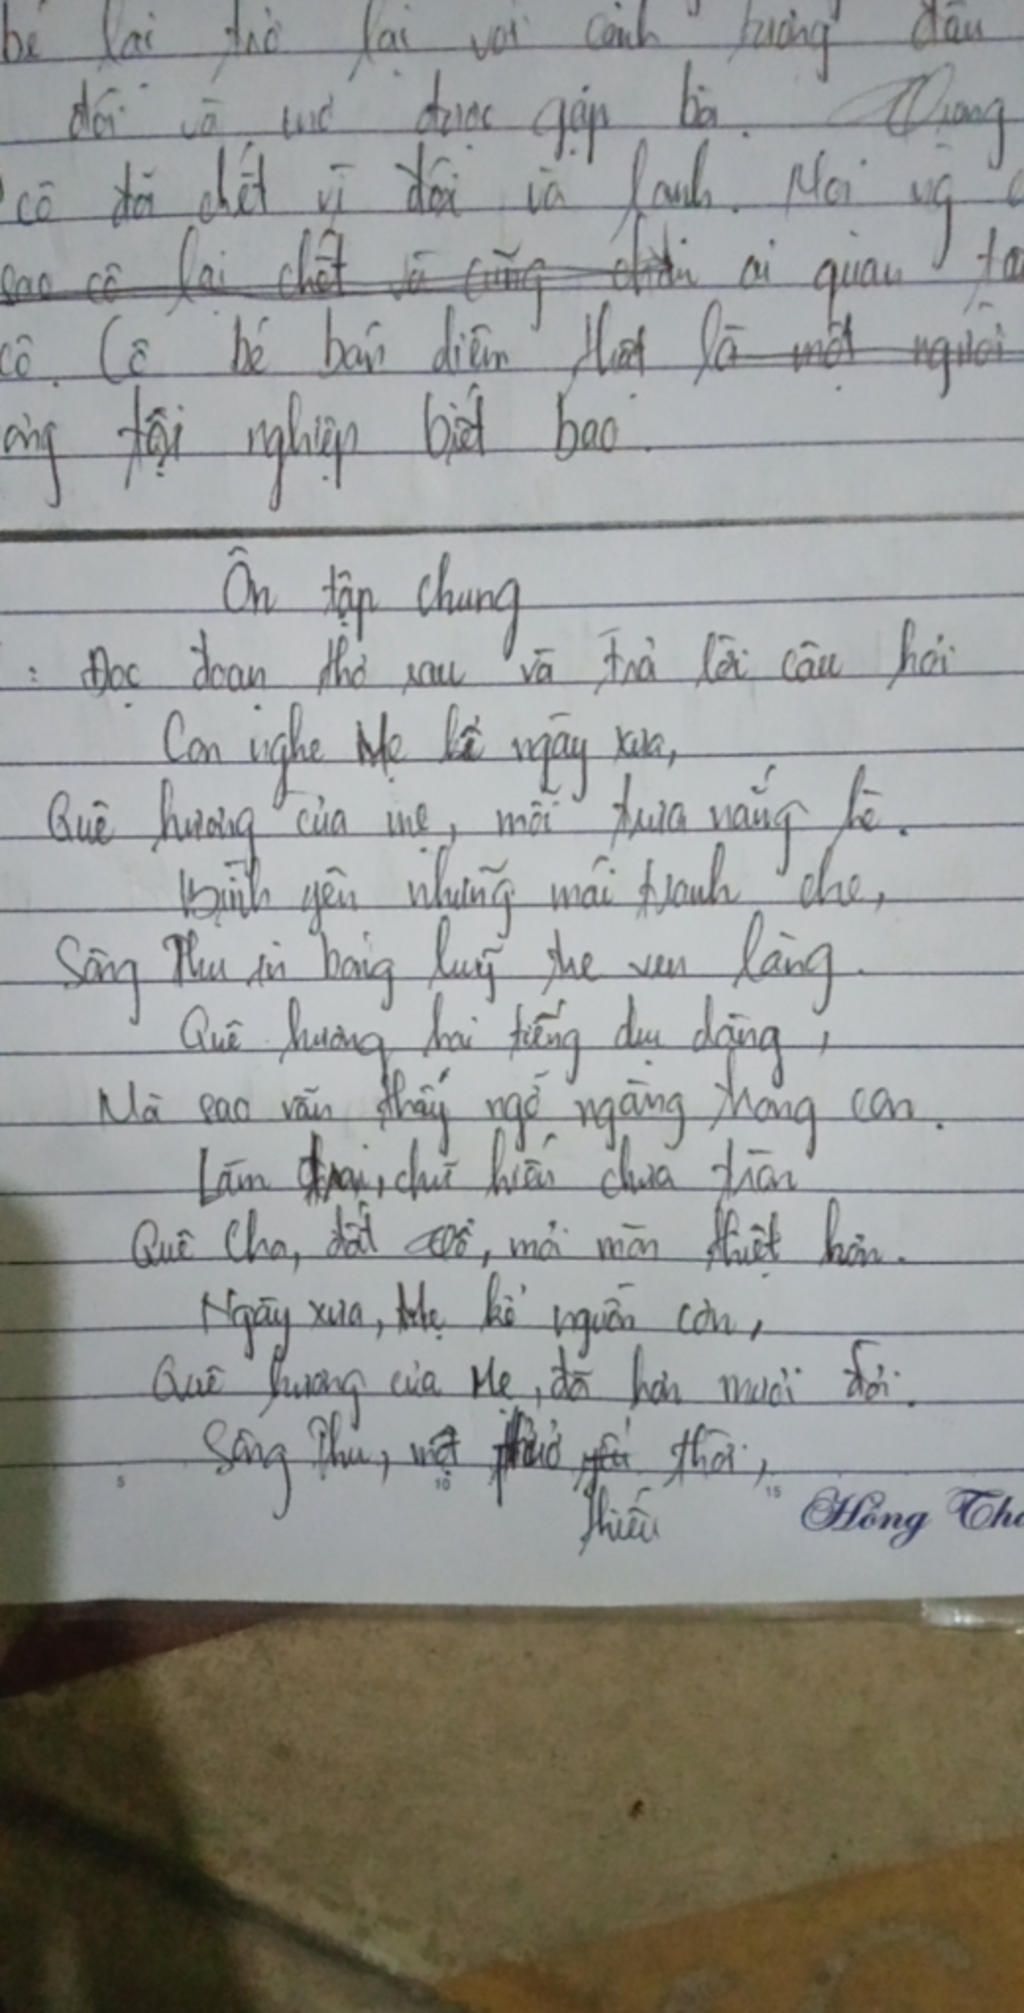 bé lại trở lại với cảnh tượng đau
đói và mơ được gặp bà.
cô đã chết vì đói và lạnh. Mọi
sao cô lại chết và cũng chẳng ai quan
cô. Cô bé bán diêm thật là một người
áng tội nghiệp biết bao.
Ôn tập chung
: Đọc đoạn thơ sau và trả lời câu hỏi
Con nghe Mẹ kể ngày xưa,
Quê hương của mẹ, mỗi trưa nắng hè.
Bình yên những mái tranh che,
Sông Thu in bóng luỹ tre ven làng.
Quê hương hai tiếng dịu dàng,
Mà sao vẫn thấy ngỡ ngàng trong con.
Làm trai, chữ hiếu chưa tròn
Quê Cha, đất tổ, mỏi mòn thiệt hơn.
Ngày xưa, Mẹ kể nguồn cơn,
Quê hương của Mẹ, đã hơn mười đời.
Sông Thu, một thuở thiếu thời,
Hồng